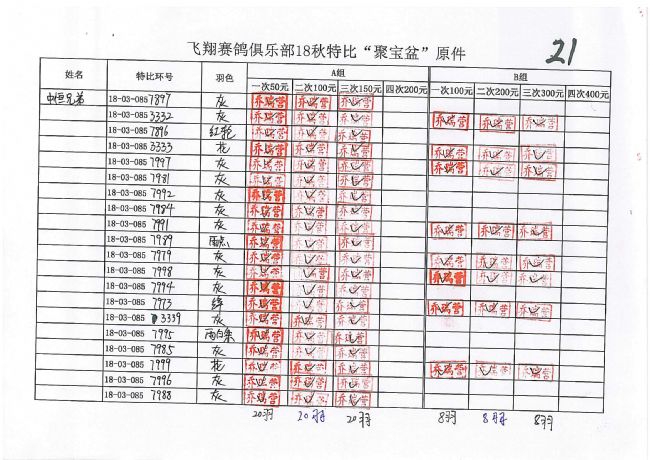 飞翔赛鸽俱乐部18秋特比“聚宝盆”原件
21
姓名 特比环号 羽色 A组 B组
一次50元 二次100元 三次150元 四次200元 一次100元 二次200元 三次300元 四次400元
中恒兄弟 18-03-085 7897 灰 乔瑞营 乔瑞营 乔瑞营
18-03-085 3332 灰 乔瑞营 乔瑞营 乔瑞营 乔瑞营 乔瑞营 乔瑞营
18-03-085 7896 红轮 乔瑞营 乔瑞营 乔瑞营
18-03-085 3333 花 乔瑞营 乔瑞营 乔瑞营 乔瑞营 乔瑞营 乔瑞营
18-03-085 7997 灰 乔瑞营 乔瑞营 乔瑞营 乔瑞营 乔瑞营 乔瑞营
18-03-085 7981 灰 乔瑞营 乔瑞营 乔瑞营
18-03-085 7992 灰 乔瑞营 乔瑞营 乔瑞营
18-03-085 7984 灰 乔瑞营 乔瑞营 乔瑞营
18-03-085 7991 灰 乔瑞营 乔瑞营 乔瑞营 乔瑞营 乔瑞营 乔瑞营
18-03-085 7989 雨点 乔瑞营 乔瑞营 乔瑞营
18-03-085 7979 灰 乔瑞营 乔瑞营 乔瑞营 乔瑞营 乔瑞营 乔瑞营
18-03-085 7998 灰 乔瑞营 乔瑞营 乔瑞营 乔瑞营 乔瑞营 乔瑞营
18-03-085 7994 灰 乔瑞营 乔瑞营 乔瑞营
18-03-085 7973 绛 乔瑞营 乔瑞营 乔瑞营 乔瑞营 乔瑞营 乔瑞营
18-03-085 3339 灰 乔瑞营 乔瑞营 乔瑞营
18-03-085 7995 雨白条 乔瑞营 乔瑞营 乔瑞营
18-03-085 7985 灰 乔瑞营 乔瑞营 乔瑞营
18-03-085 7999 花 乔瑞营 乔瑞营 乔瑞营 乔瑞营 乔瑞营 乔瑞营
18-03-085 7996 灰 乔瑞营 乔瑞营 乔瑞营
18-03-085 7988 灰 乔瑞营 乔瑞营 乔瑞营
20羽 20羽 20羽 8羽 8羽 8羽